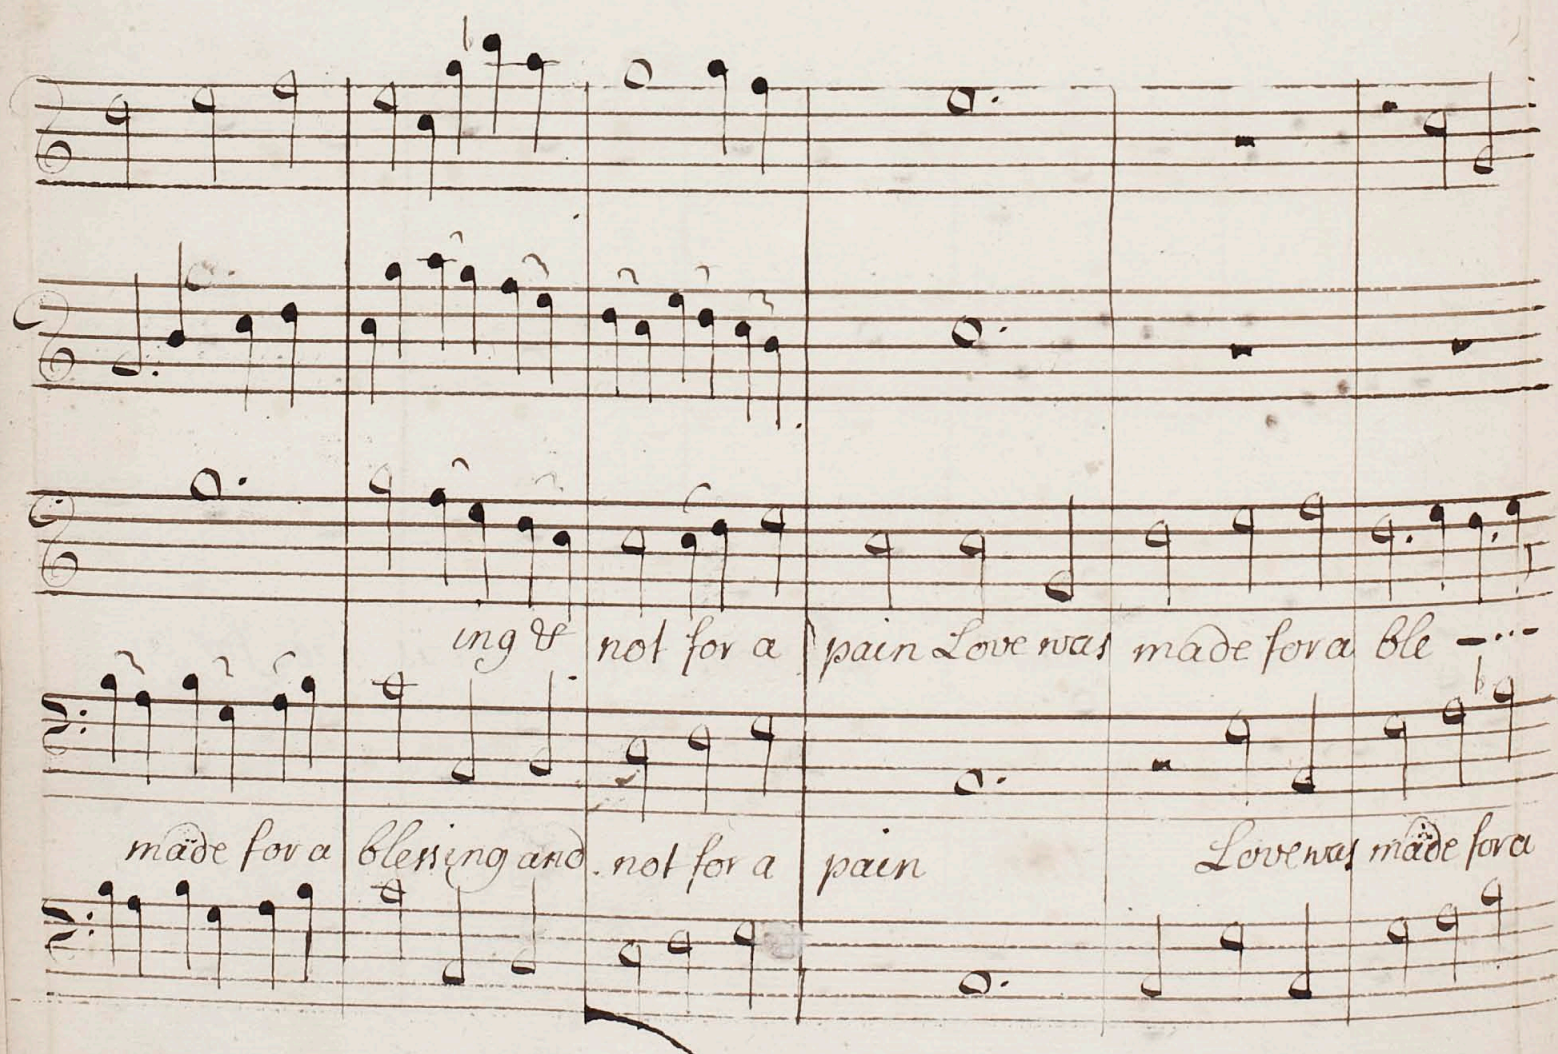 ing & not for a pain Love was made for a ble - . . -
made for a blessing and not for a pain Love was made for a